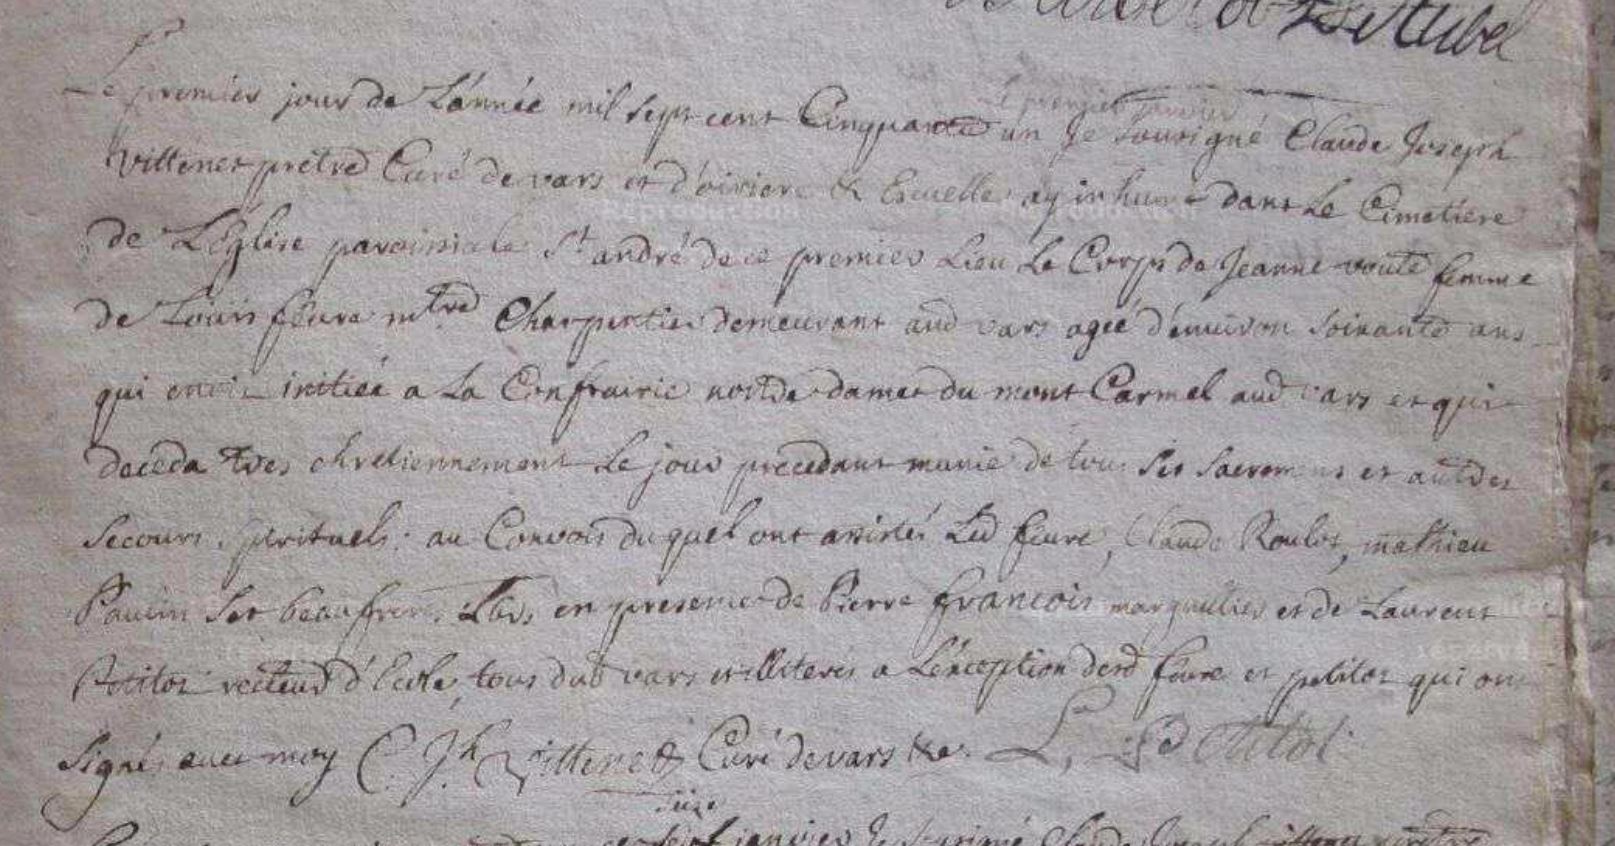 Le premier jour de L'année mil sept cent Cinquante un Je sousigné Claude Joseph
vittenet prêtre Curé de vars et d'oiriere & Ecuelles ay inhumé dans Le Cimetiere
de L'Eglise paroissiale St andré de ce premier Lieu Le Corps de Jeanne voute femme
de Louis fevre mtre Charpentier demeurant aud vars agée d'environ soixante ans
qui initiée a La Confrairie nostre dame du mont Carmel aud vars et qui
deceda tres chretiennement Le jour precedant munie de tous ses sacremens et autres
secours spirituels; au Convois duquel ont assistés Led fevre, Claude Roulot, mathieu
ses beaufreres en presence de Pierre francois marguillier et de Laurent
Petitot recteur d'Ecole, tous dud vars et illiterés a L'exception desd fevre et petitot qui ont
signés avec moy C. Jh vittenet Curé de vars &c. L, Petitot